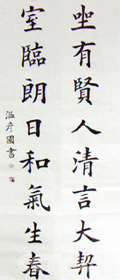 坐有賢人清言大契
室臨朗日和氣生春